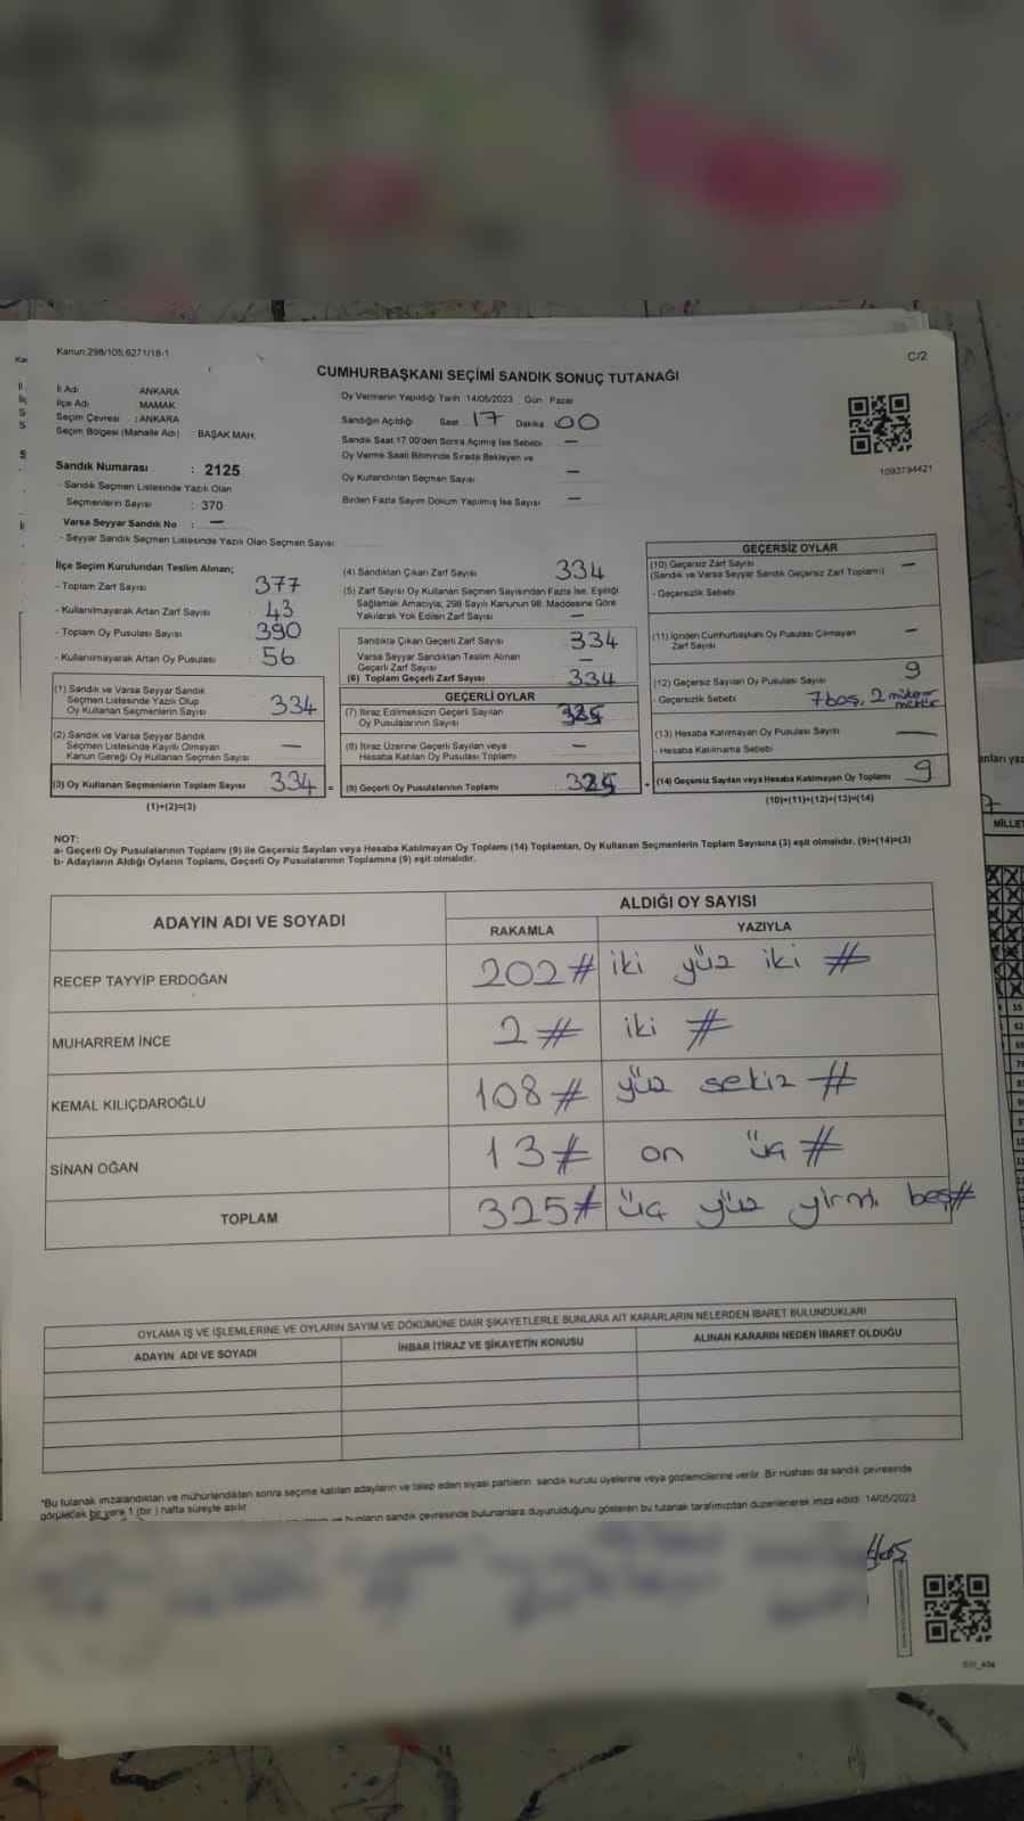 Kanun:298/105,6271/18-1
C/2
CUMHURBAŞKANI SEÇİMİ SANDIK SONUÇ TUTANAĞI
İl Adı ANKARA
İlçe Adı MAMAK
Seçim Çevresi : ANKARA
Seçim Bölgesi (Mahalle Adı) BAŞAK MAH.
Oy Vermenin Yapıldığı Tarih :14/05/2023 Gün : Pazar
Sandığın Açıldığı Saat 17 Dakika 00
Sandık Saat 17.00'den Sonra Açılmış İse Sebebi —
Oy Verme Saati Bitiminde Sırada Bekleyen ve
Oy Kullandırılan Seçmen Sayısı —
Birden Fazla Sayım Döküm Yapılmış İse Sayısı —
1093794421
Sandık Numarası : 2125
- Sandık Seçmen Listesinde Yazılı Olan
Seçmenlerin Sayısı : 370
Varsa Seyyar Sandık No : —
- Seyyar Sandık Seçmen Listesinde Yazılı Olan Seçmen Sayısı
İlçe Seçim Kurulundan Teslim Alınan;
- Toplam Zarf Sayısı 377
- Kullanılmayarak Artan Zarf Sayısı 43
- Toplam Oy Pusulası Sayısı 390
- Kullanılmayarak Artan Oy Pusulası 56
(1) Sandık ve Varsa Seyyar Sandık
Seçmen Listesinde Yazılı Olup
Oy Kullanan Seçmenlerin Sayısı 334
(2) Sandık ve Varsa Seyyar Sandık
Seçmen Listesinde Kayıtlı Olmayan
Kanun Gereği Oy Kullanan Seçmen Sayısı —
(3) Oy Kullanan Seçmenlerin Toplam Sayısı 334 =
(1)+(2)=(3)
(4) Sandıktan Çıkan Zarf Sayısı 334
(5) Zarf Sayısı Oy Kullanan Seçmen Sayısından Fazla İse, Eşitliği
Sağlamak Amacıyla, 298 Sayılı Kanunun 98. Maddesine Göre
Yakılarak Yok Edilen Zarf Sayısı —
Sandıkta Çıkan Geçerli Zarf Sayısı 334
Varsa Seyyar Sandıktan Teslim Alınan
Geçerli Zarf Sayısı —
(6) Toplam Geçerli Zarf Sayısı 334
GEÇERLİ OYLAR
(7) İtiraz Edilmeksizin Geçerli Sayılan
Oy Pusulalarının Sayısı 325
(8) İtiraz Üzerine Geçerli Sayılan veya
Hesaba Katılan Oy Pusulası Toplamı —
(9) Geçerli Oy Pusulalarının Toplamı 325 +
GEÇERSİZ OYLAR
(10) Geçersiz Zarf Sayısı —
(Sandık ve Varsa Seyyar Sandık Geçersiz Zarf Toplamı)
- Geçersizlik Sebebi
(11) İçinden Cumhurbaşkanı Oy Pusulası Çıkmayan
Zarf Sayısı —
(12) Geçersiz Sayılan Oy Pusulası Sayısı 9
- Geçersizlik Sebebi 7 boş, 2
(13) Hesaba Katılmayan Oy Pusulası Sayısı —
- Hesaba Katılmama Sebebi
(14) Geçersiz Sayılan veya Hesaba Katılmayan Oy Toplamı 9
(10)+(11)+(12)+(13)=(14)
NOT:
a- Geçerli Oy Pusulalarının Toplamı (9) ile Geçersiz Sayılan veya Hesaba Katılmayan Oy Toplamı (14) Toplamları, Oy Kullanan Seçmenlerin Toplam Sayısına (3) eşit olmalıdır. (9)+(14)=(3)
b- Adayların Aldığı Oyların Toplamı, Geçerli Oy Pusulalarının Toplamına (9) eşit olmalıdır.
ADAYIN ADI VE SOYADI
ALDIĞI OY SAYISI
RAKAMLA YAZIYLA
RECEP TAYYİP ERDOĞAN 202# iki yüz iki #
MUHARREM İNCE 2# iki #
KEMAL KILIÇDAROĞLU 108# yüz sekiz #
SİNAN OĞAN 13# on üç #
TOPLAM 325# üç yüz yirmi beş#
OYLAMA İŞ VE İŞLEMLERİNE VE OYLARIN SAYIM VE DÖKÜMÜNE DAİR ŞİKAYETLERLE BUNLARA AİT KARARLARIN NELERDEN İBARET BULUNDUKLARI
ADAYIN ADI VE SOYADI İHBAR İTİRAZ VE ŞİKAYETİN KONUSU ALINAN KARARIN NEDEN İBARET OLDUĞU
*Bu tutanak imzalandıktan ve mühürlendikten sonra seçime katılan adayların ve talep eden siyasi partilerin sandık kurulu üyelerine veya gözlemcilerine verilir. Bir nüshası da sandık çevresinde
görülecek bir yere 1 (bir) hafta süreyle asılır.
bunların sandık çevresinde bulunanlara duyurulduğunu gösteren bu tutanak tarafımızdan düzenlenerek imza edildi. 14/05/2023
MİLLET